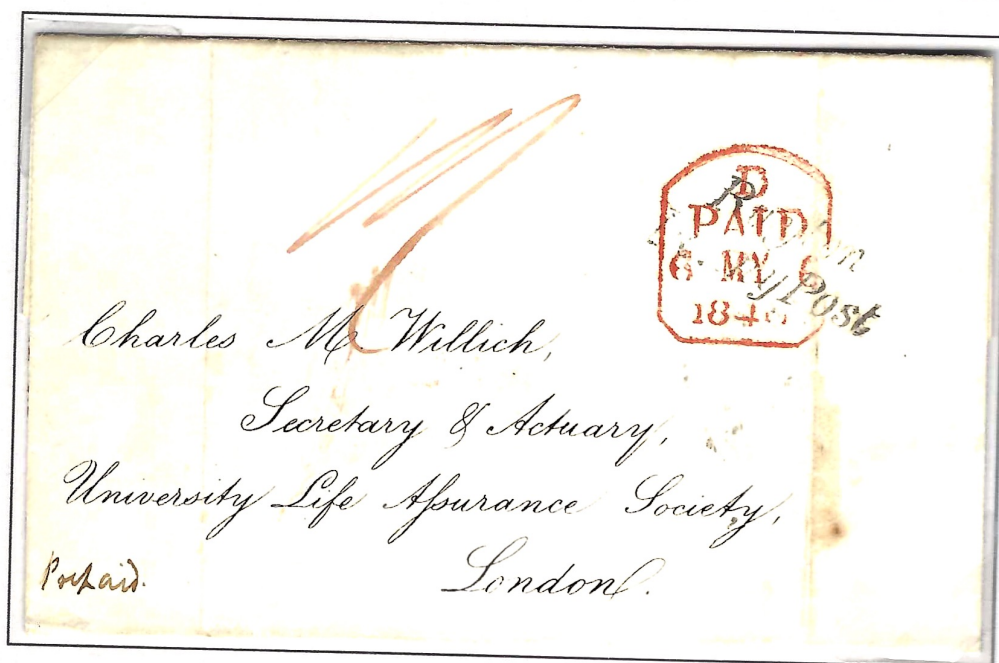 D
PAID
6 MY 6
184
Penny Post
Charles M. Willich,
Secretary & Actuary,
University Life Assurance Society,
London.
Prepaid.